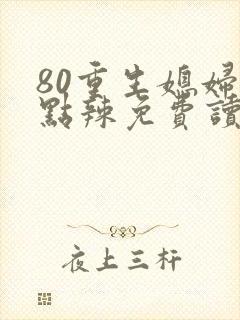 80重生媳婦
點辣免費讀
夜上三杆